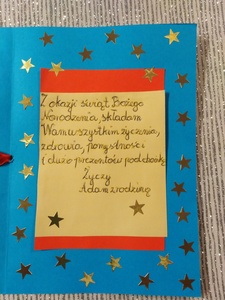 Z okazji świąt Bożego
Narodzenia, składam
Wam wszystkim życzenia,
zdrowia, pomyślności
i dużo prezentów pod choinkę
Życzy
Adam z rodziną